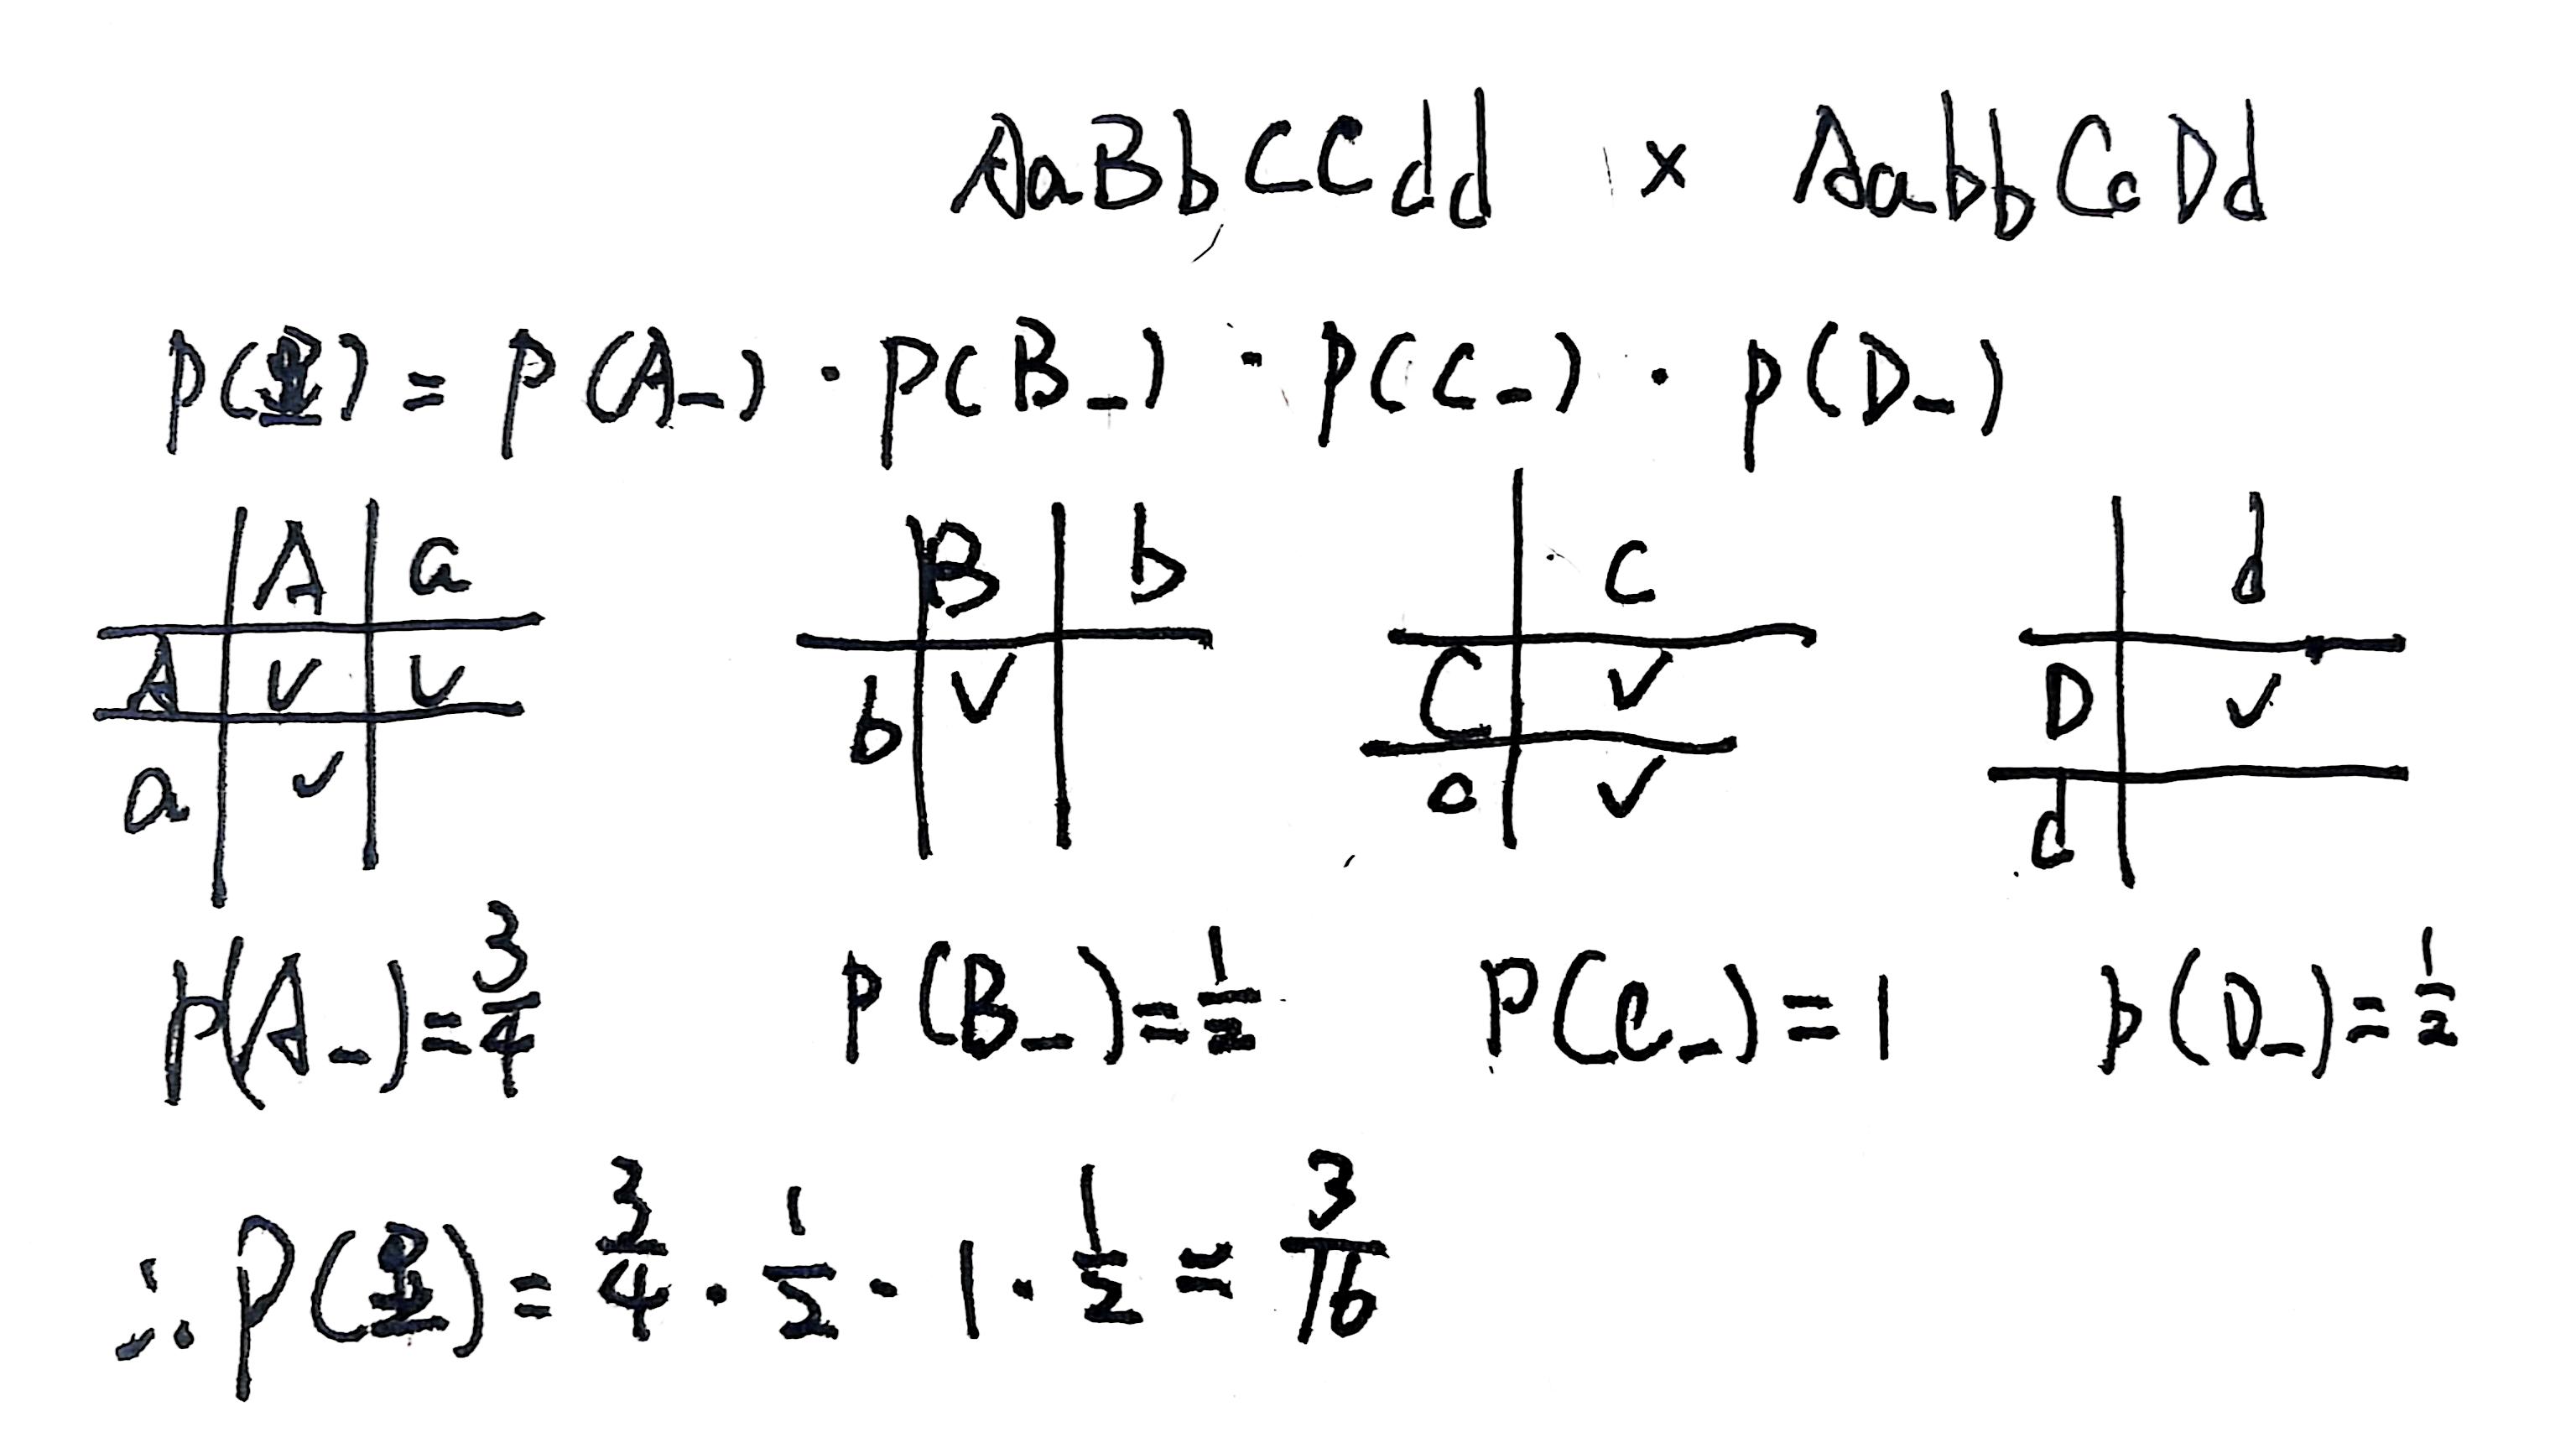 AaBbCCdd × AabbCcDd
P(显) = P(A_) · P(B_) · P(C_) · P(D_)
A a B b C d
A ✓ ✓ b ✓ C ✓ D ✓
a ✓ c ✓ d
P(A_)=3/4 P(B_)=1/2 P(C_)=1 P(D_)=1/2
∴ P(显) = 3/4 · 1/2 · 1 · 1/2 = 3/16